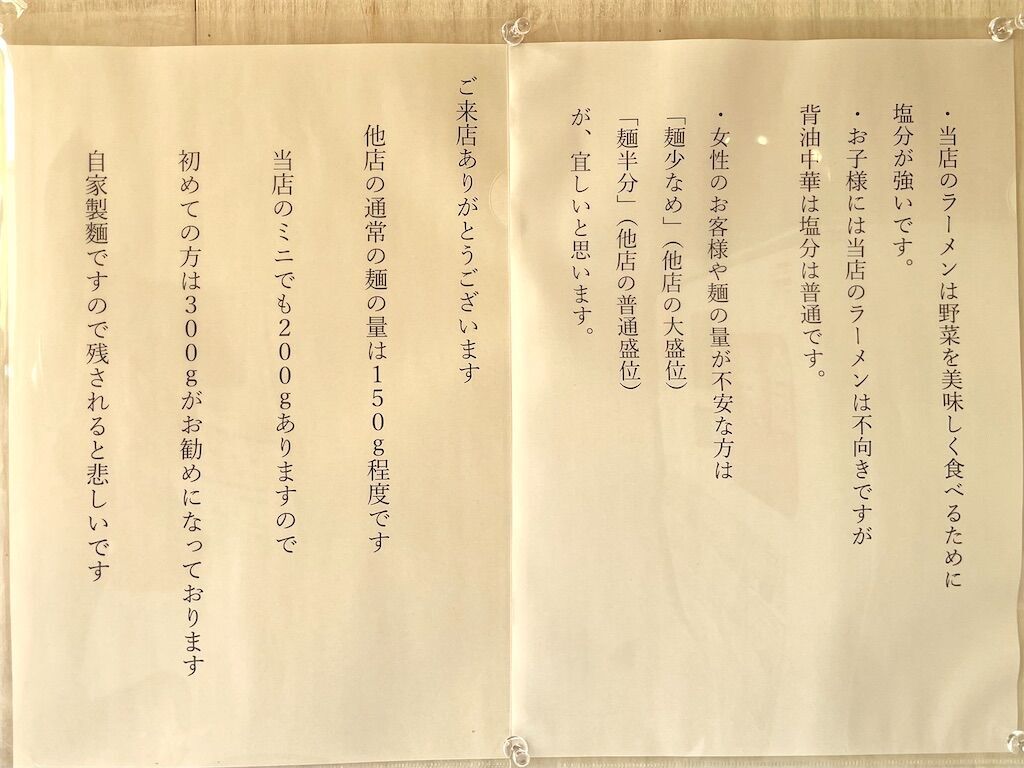 ・当店のラーメンは野菜を美味しく食べるために
塩分が強いです。
・お子様には当店のラーメンは不向きですが
背油中華は塩分は普通です。
・女性のお客様や麺の量が不安な方は
「麺少なめ」（他店の大盛位）
「麺半分」（他店の普通盛位）
が、宜しいと思います。
ご来店ありがとうございます
他店の通常の麺の量は150g程度です
当店のミニでも200gありますので
初めての方は300gがお勧めになっております
自家製麺ですので残されると悲しいです